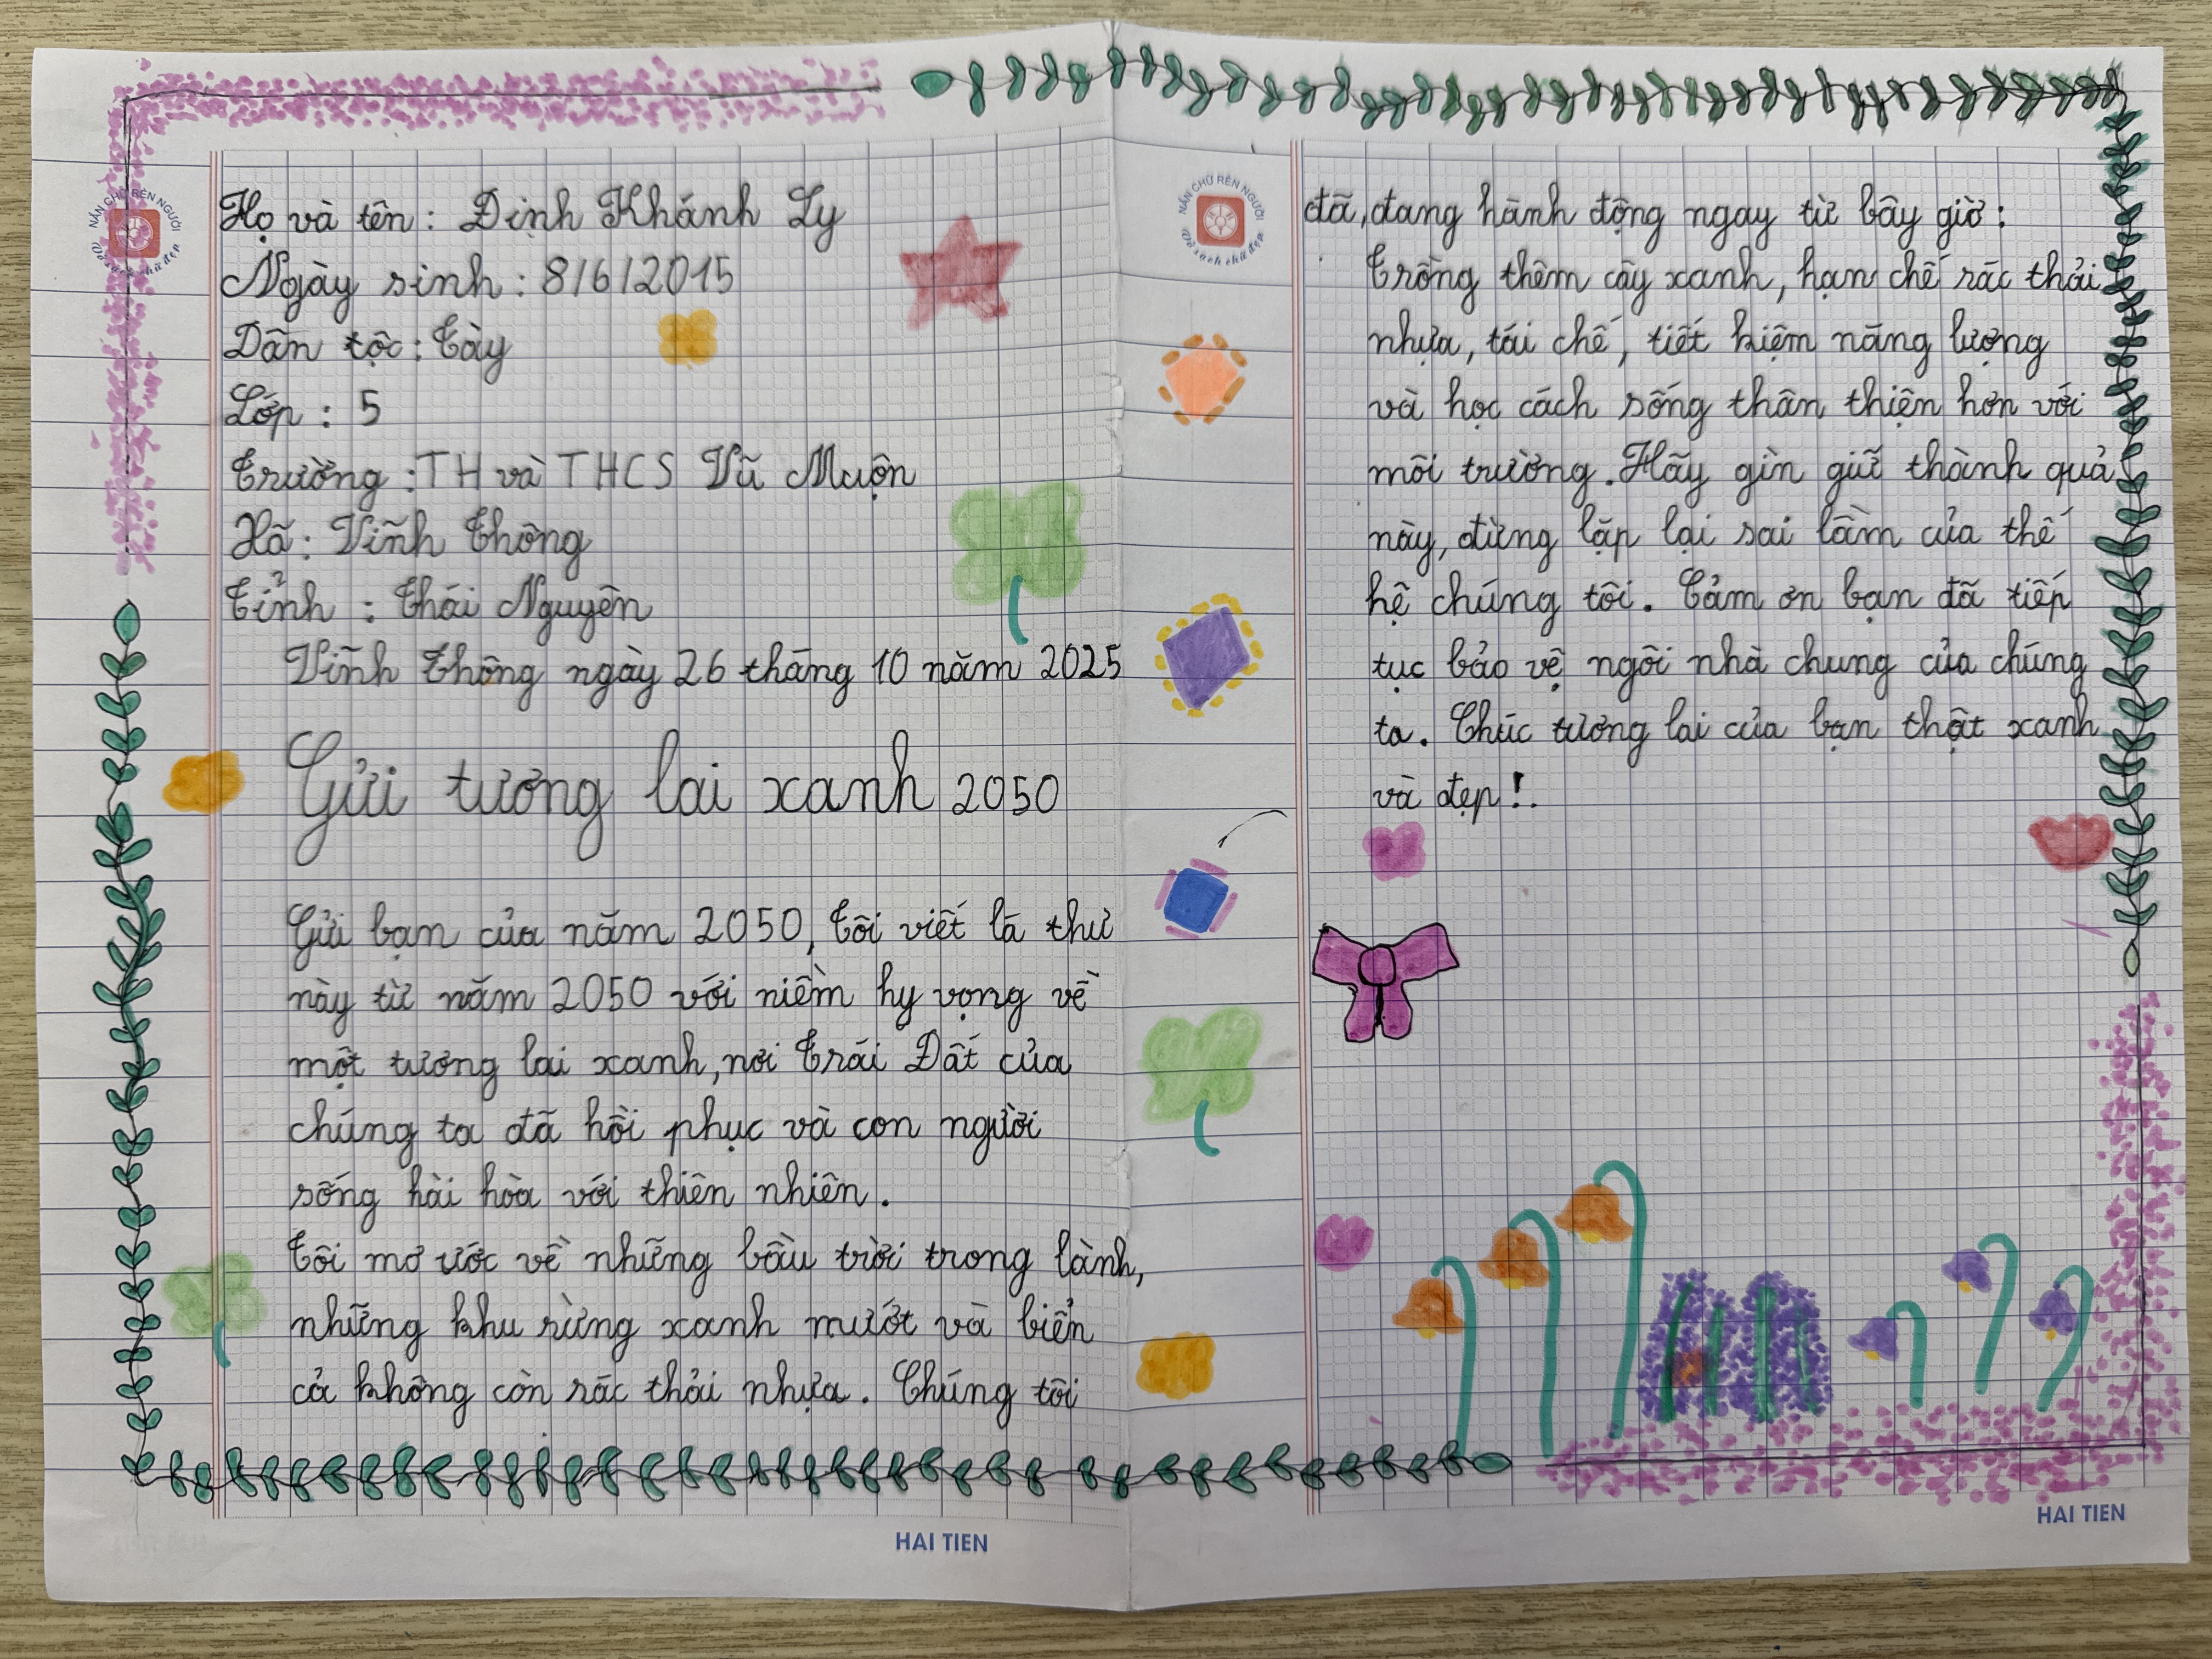 NẮN CHỮ RÈN NGƯỜI
Vở sạch chữ đẹp
Họ và tên : Đinh Khánh Ly
Ngày sinh : 8/6/2015
Dân tộc : Tày
Lớp : 5
Trường : TH và THCS Vũ Muộn
Xã : Vĩnh Thông
Tỉnh : Thái Nguyên
Vĩnh Thông ngày 26 tháng 10 năm 2025
Gửi tương lai xanh 2050
Gửi bạn của năm 2050, Tôi viết lá thư
này từ năm 2050 với niềm hy vọng về
một tương lai xanh, nơi Trái Đất của
chúng ta đã hồi phục và con người
sống hài hòa với thiên nhiên.
Tôi mơ ước về những bầu trời trong lành,
những khu rừng xanh mướt và biển
cả không còn rác thải nhựa. Chúng tôi
HAI TIEN
NẮN CHỮ RÈN NGƯỜI
Vở sạch chữ đẹp
đã, đang hành động ngay từ bây giờ :
Trồng thêm cây xanh, hạn chế rác thải
nhựa, tái chế, tiết kiệm năng lượng
và học cách sống thân thiện hơn với
môi trường. Hãy gìn giữ thành quả
này, đừng lặp lại sai lầm của thế
hệ chúng tôi. Cảm ơn bạn đã tiếp
tục bảo vệ ngôi nhà chung của chúng
ta. Chúc tương lai của bạn thật xanh
và đẹp !.
HAI TIEN